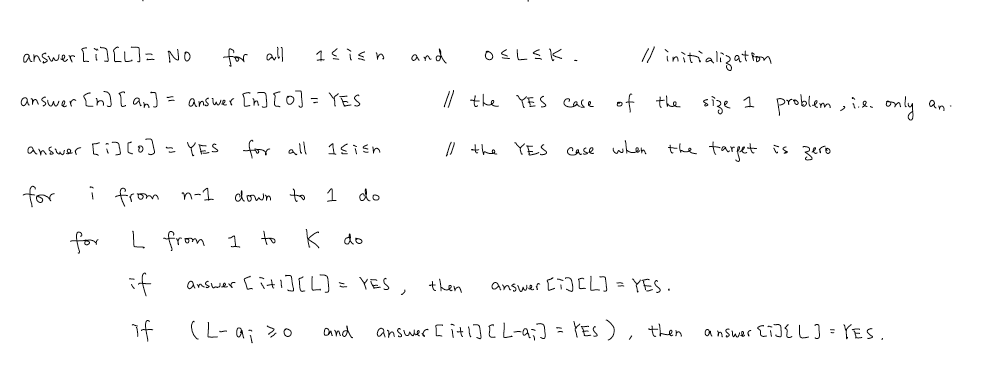 answer [i][L] = NO for all 1 ≤ i ≤ n and 0 ≤ L ≤ K. // initialization
answer [n][an] = answer [n][0] = YES // the YES case of the size 1 problem, i.e. only an.
answer [i][0] = YES for all 1≤i≤n // the YES case when the target is zero
for i from n-1 down to 1 do
for L from 1 to K do
if answer [i+1][L] = YES, then answer [i][L] = YES.
if (L-ai ≥ 0 and answer [i+1][L-ai] = YES), then answer [i][L] = YES.